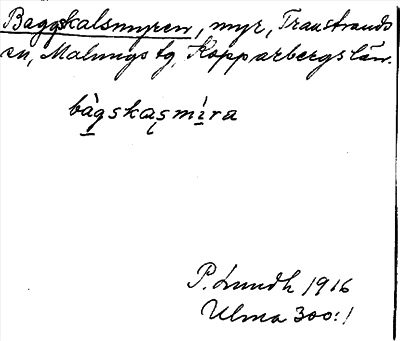 Baggskalsmyren, myr, Transtrands
sn, Malungs tg, Kopparbergs län.
bàgskas̨mìra
P. Lundh 1916
Ulma 300:1